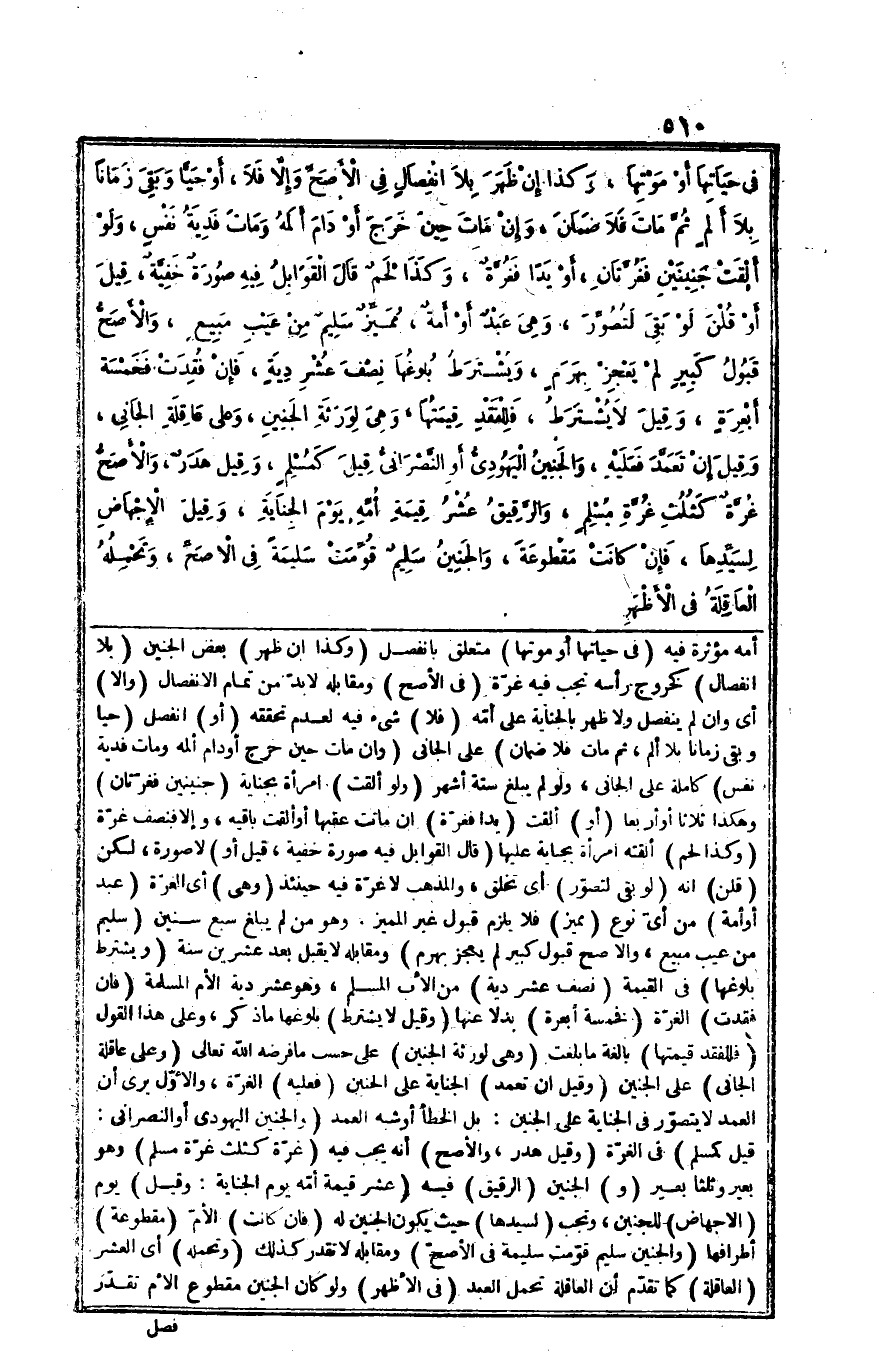 ٥١٠
فِى حَيَاتِهَا أَوْ مَوْتِهَا ، وَكَذَا إِنْ ظَهَرَ بِلَا انْفِصَالٍ فِي الْأَصَحِّ وَإِلَّا فَلَا ، أَوْ حَيًّا وَبَقِىَ زَمَانًا
بِلَا أَلَمٍ ثُمَّ مَاتَ فَلَا ضَمَانَ ، وَإِنْ مَاتَ حِينَ خَرَجَ أَوْ دَامَ أَلَمُهُ وَمَاتَ فَدِيَةُ نَفْسٍ ، وَلَوْ
أَلْقَتْ جَنِينَيْنِ فَغُرَّتَانِ ، أَوْ يَدًا فَغُرَّةٌ ، وَكَذَا لَحْمٌ قَالَ الْقَوَابِلُ فِيهِ صُورَةٌ خَفِيَّةٌ ، قِيلَ
أَوْ قُلْنَ لَوْ بَقِىَ لَتُصُوِّرَ ، وَهِىَ عَبْدٌ أَوْ أَمَةٌ ، مُمَيِّزٌ سَلِيمٌ مِنْ عَيْبِ مَبِيعٍ ، وَالْأَصَحُّ
قَبُولُ كَبِيرٍ لَمْ يَعْجِزْ بِهَرَمٍ ، وَيُشْتَرَطُ بُلُوغُهَا نِصْفَ عُشْرِ دِيَةٍ ، فَإِنْ فُقِدَتْ فَخَمْسَةُ
أَبْعِرَةٍ ، وَقِيلَ لَا يُشْتَرَطُ ، فَلِلْفَقْدِ قِيمَتُهَا ، وَهِىَ لِوَرَثَةِ الْجَنِينِ ، وَعَلَى عَاقِلَةِ الْجَانِى ،
وَقِيلَ إِنْ تَعَمَّدَ فَعَلَيْهِ ، وَالْجَنِينُ الْيَهُودِىُّ أَوِ النَّصْرَانِىُّ قِيلَ كَمُسْلِمٍ ، وَقِيلَ هَدَرٌ ، وَالْأَصَحُّ
غُرَّةٌ كَثُلُثِ غُرَّةِ مُسْلِمٍ ، وَالرَّقِيقُ عُشْرُ قِيمَةِ أُمِّهِ يَوْمَ الْجِنَايَةِ ، وَقِيلَ الْإِجْهَاضِ
لِسَيِّدِهَا ، فَإِنْ كَانَتْ مَقْطُوعَةً ، وَالْجَنِينُ سَلِيمٌ قُوِّمَتْ سَلِيمَةً فِى الْأَصَحِّ ، وَتَحْمِلُهُ
الْعَاقِلَةُ فِى الْأَظْهَرِ
أمه مؤثرة فيه ( فى حياتها أو موتها ) متعلق بانفصل ( وكذا ان ظهر ) بعض الجنين ( بلا
انفصال ) كخروج رأسه تجب فيه غرّة ( فى الأصح ) ومقابله لابدّ من تمام الانفصال ( والا )
أى وان لم ينفصل ولا ظهر بالجناية على أمّه ( فلا ) شىء فيه لعدم تحققه ( أو ) انفصل ( حيا
وبقى زمانا بلا ألم ، ثم مات فلا ضمان ) على الجانى ( وان مات حين خرج أودام ألمه ومات فدية
نفس ) كاملة على الجانى ، ولو لم يبلغ ستة أشهر ( ولو ألقت ) امرأة بجناية ( جنينين فغرّتان )
وهكذا ثلاثا أوأربعا ( أو ) ألقت ( يدا فغرّة ) ان ماتت عقبها أوألقت باقيه ، وإلا فنصف غرّة
( وكذا لحم ) ألقته امرأة بجناية عليها ( قال القوابل فيه صورة خفية ، قيل أو ) لاصورة ، لكن
( قلن ) انه ( لو بقى لتصوّر ) أى تخلق ، والمذهب لا غرّة فيه حينئذ ( وهى ) أى الغرّة ( عبد
أوأمة ) من أىّ نوع ( مميز ) فلا يلزم قبول غير المميز ، وهو من لم يبلغ سبع سنين ( سليم
من عيب مبيع ، والاصح قبول كبير لم يعجز بهرم ) ومقابله لايقبل بعد عشرين سنة ( ويشترط
بلوغها ) فى القيمة ( نصف عشر دية ) من الأب المسلم ، وهو عشر دية الأم المسلمة ( فان
فقدت ) الغرّة ( فخمسة أبعرة ) بدلا عنها ( وقيل لايشترط ) بلوغها ماذكر ، وعلى هذا القول
( فللفقد قيمتها ) بالغة مابلغت ( وهى لورثة الجنين ) على حسب مافرضه الله تعالى ( وعلى عاقلة
الجانى ) على الجنين ( وقيل ان تعمد ) الجناية على الجنين ( فعليه ) الغرّة ، والأوّل يرى أن
العمد لايتصوّر فى الجناية على الجنين : بل الخطأ أوشبه العمد ( والجنين اليهودى أوالنصرانى :
قيل كمسلم ) فى الغرّة ( وقيل هدر ، والأصح ) أنه يجب فيه ( غرّة كثلث غرّة مسلم ) وهو
بعير وثلثا بعير ( و ) الجنين ( الرقيق ) فيه ( عشر قيمة أمّه يوم الجناية : وقيل ) يوم
( الاجهاض ) للجنين ، وتجب ( لسيدها ) حيث يكون الجنين له ( فان كانت ) الأمّ ( مقطوعة )
أطرافها ( والجنين سليم قوّمت سليمة فى الأصحّ ) ومقابله لاتقدر كذلك ( وتحمله ) أى العشر
( العاقلة ) كما تقدّم أن العاقلة تحمل العبد ( فى الأظهر ) ولو كان الجنين مقطوع الأم تقدّر
فصل